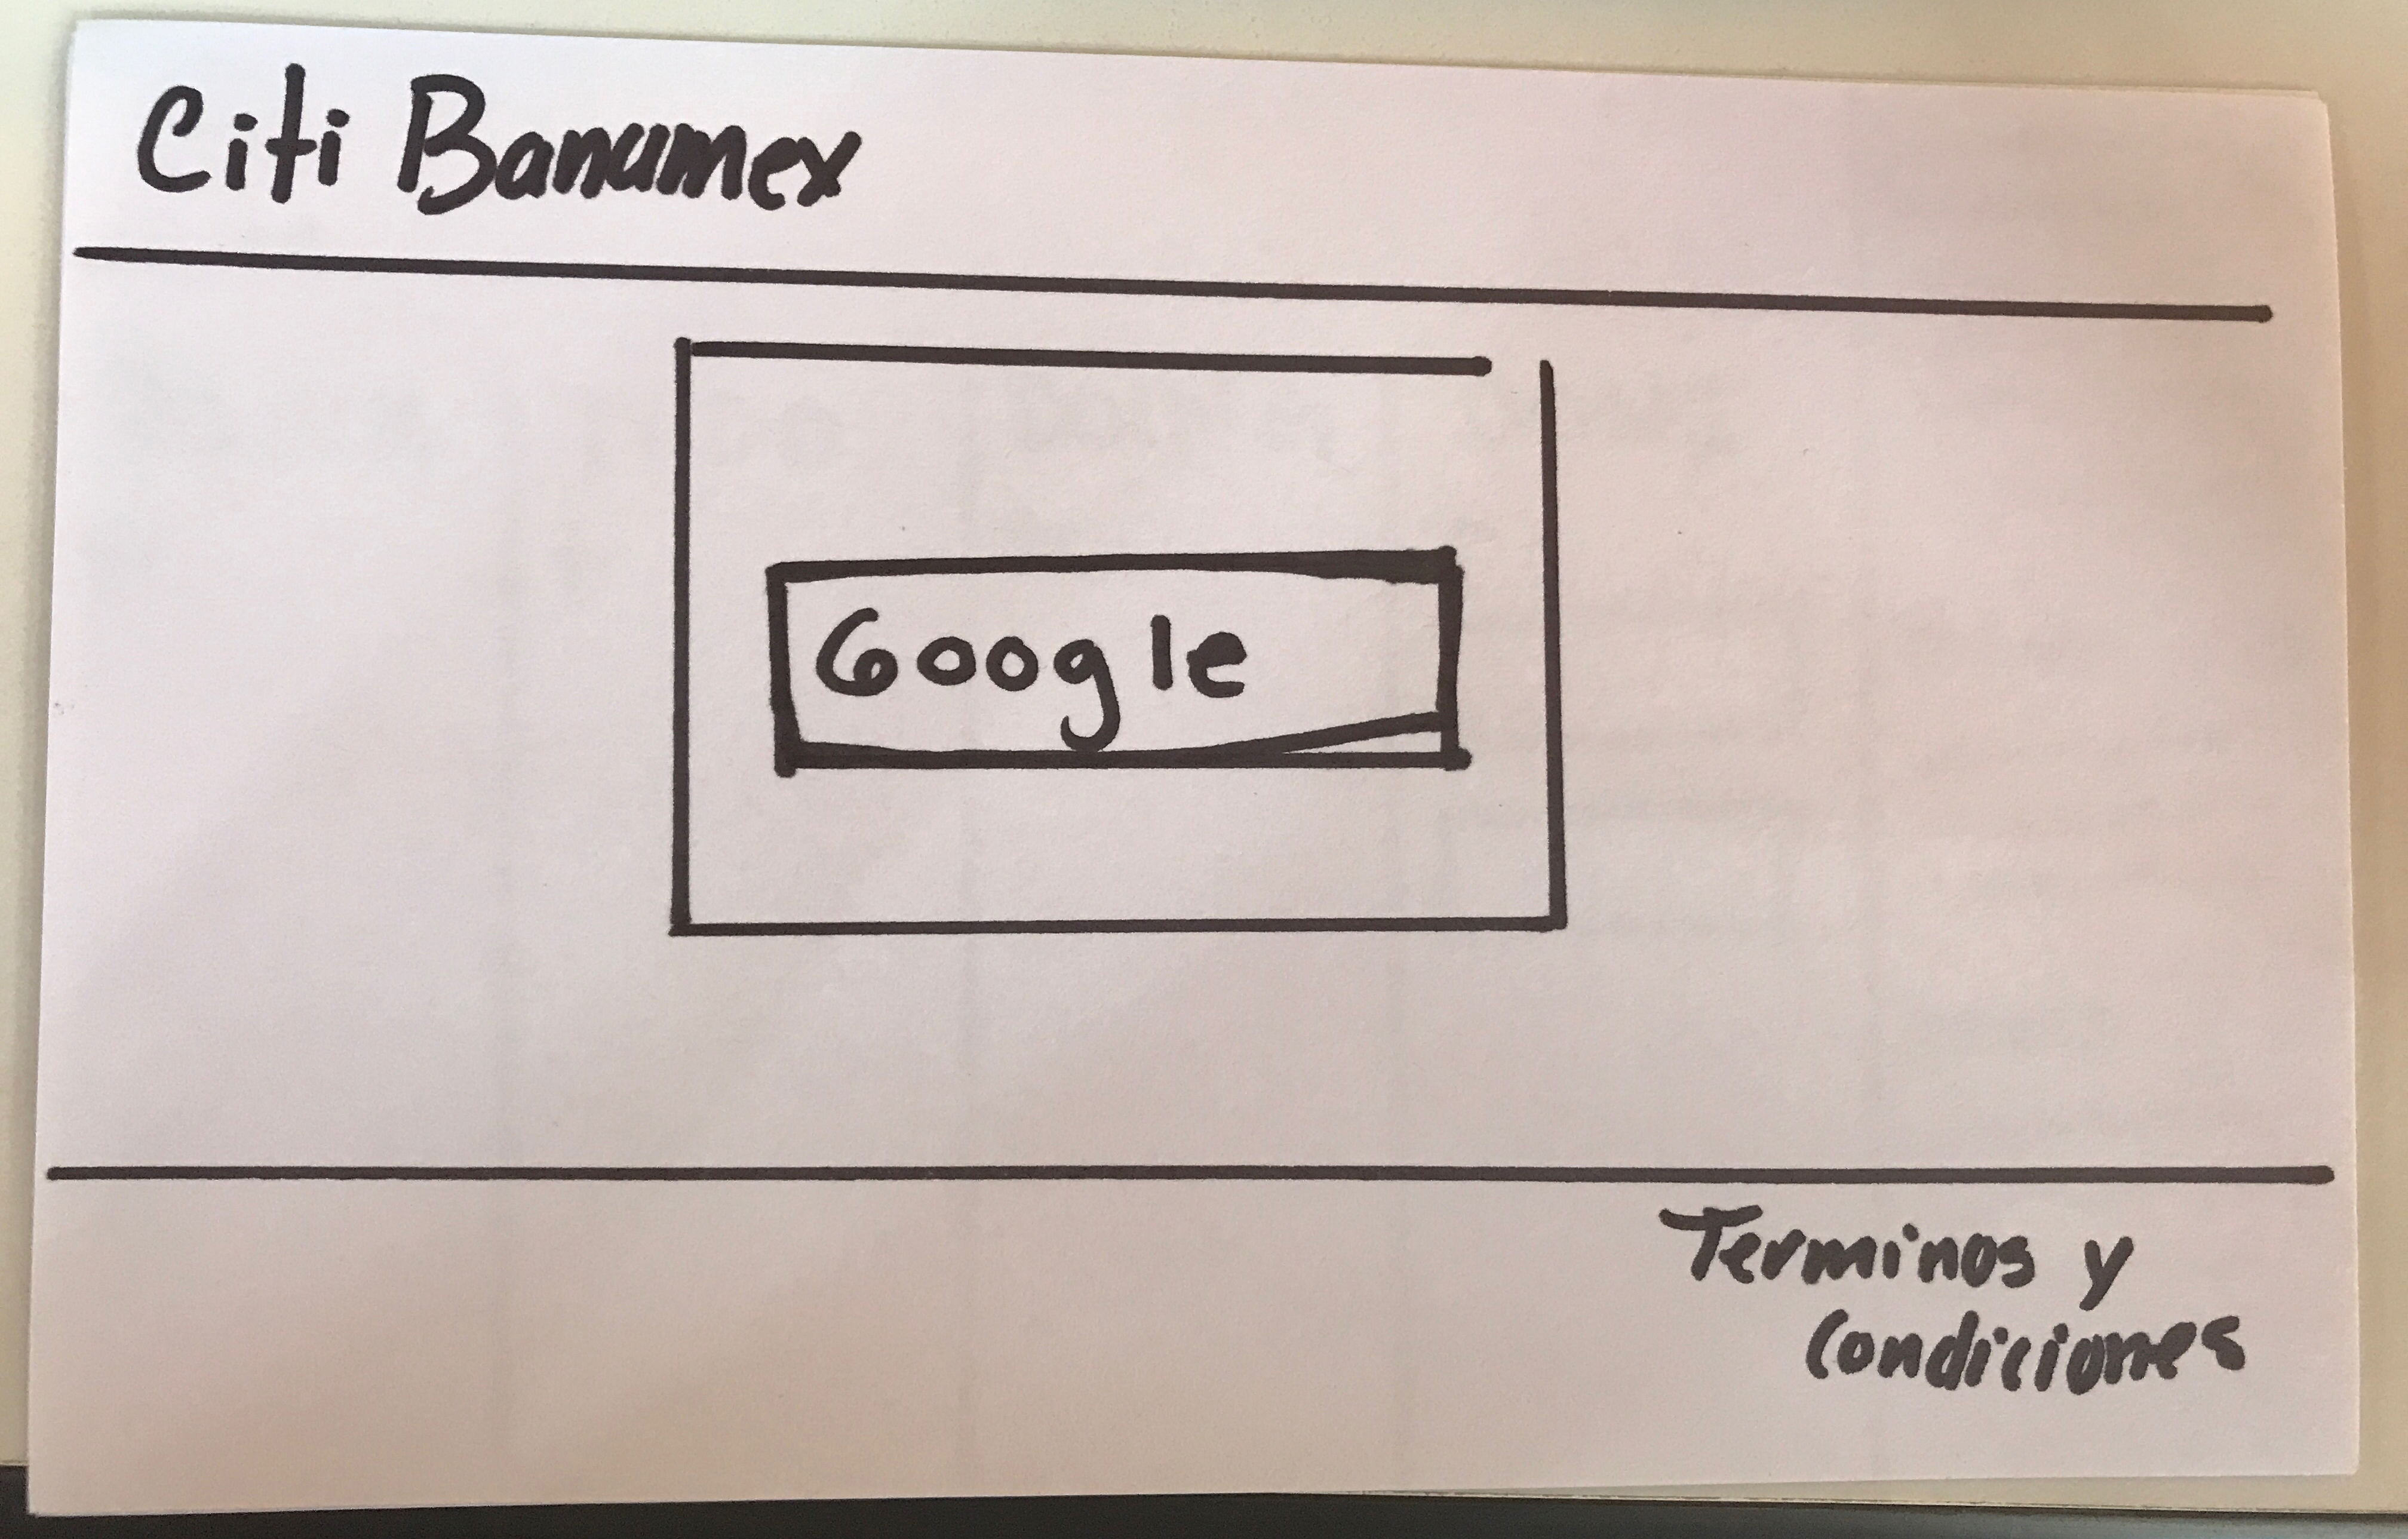 Citi Banamex
Google
Terminos y
Condiciones